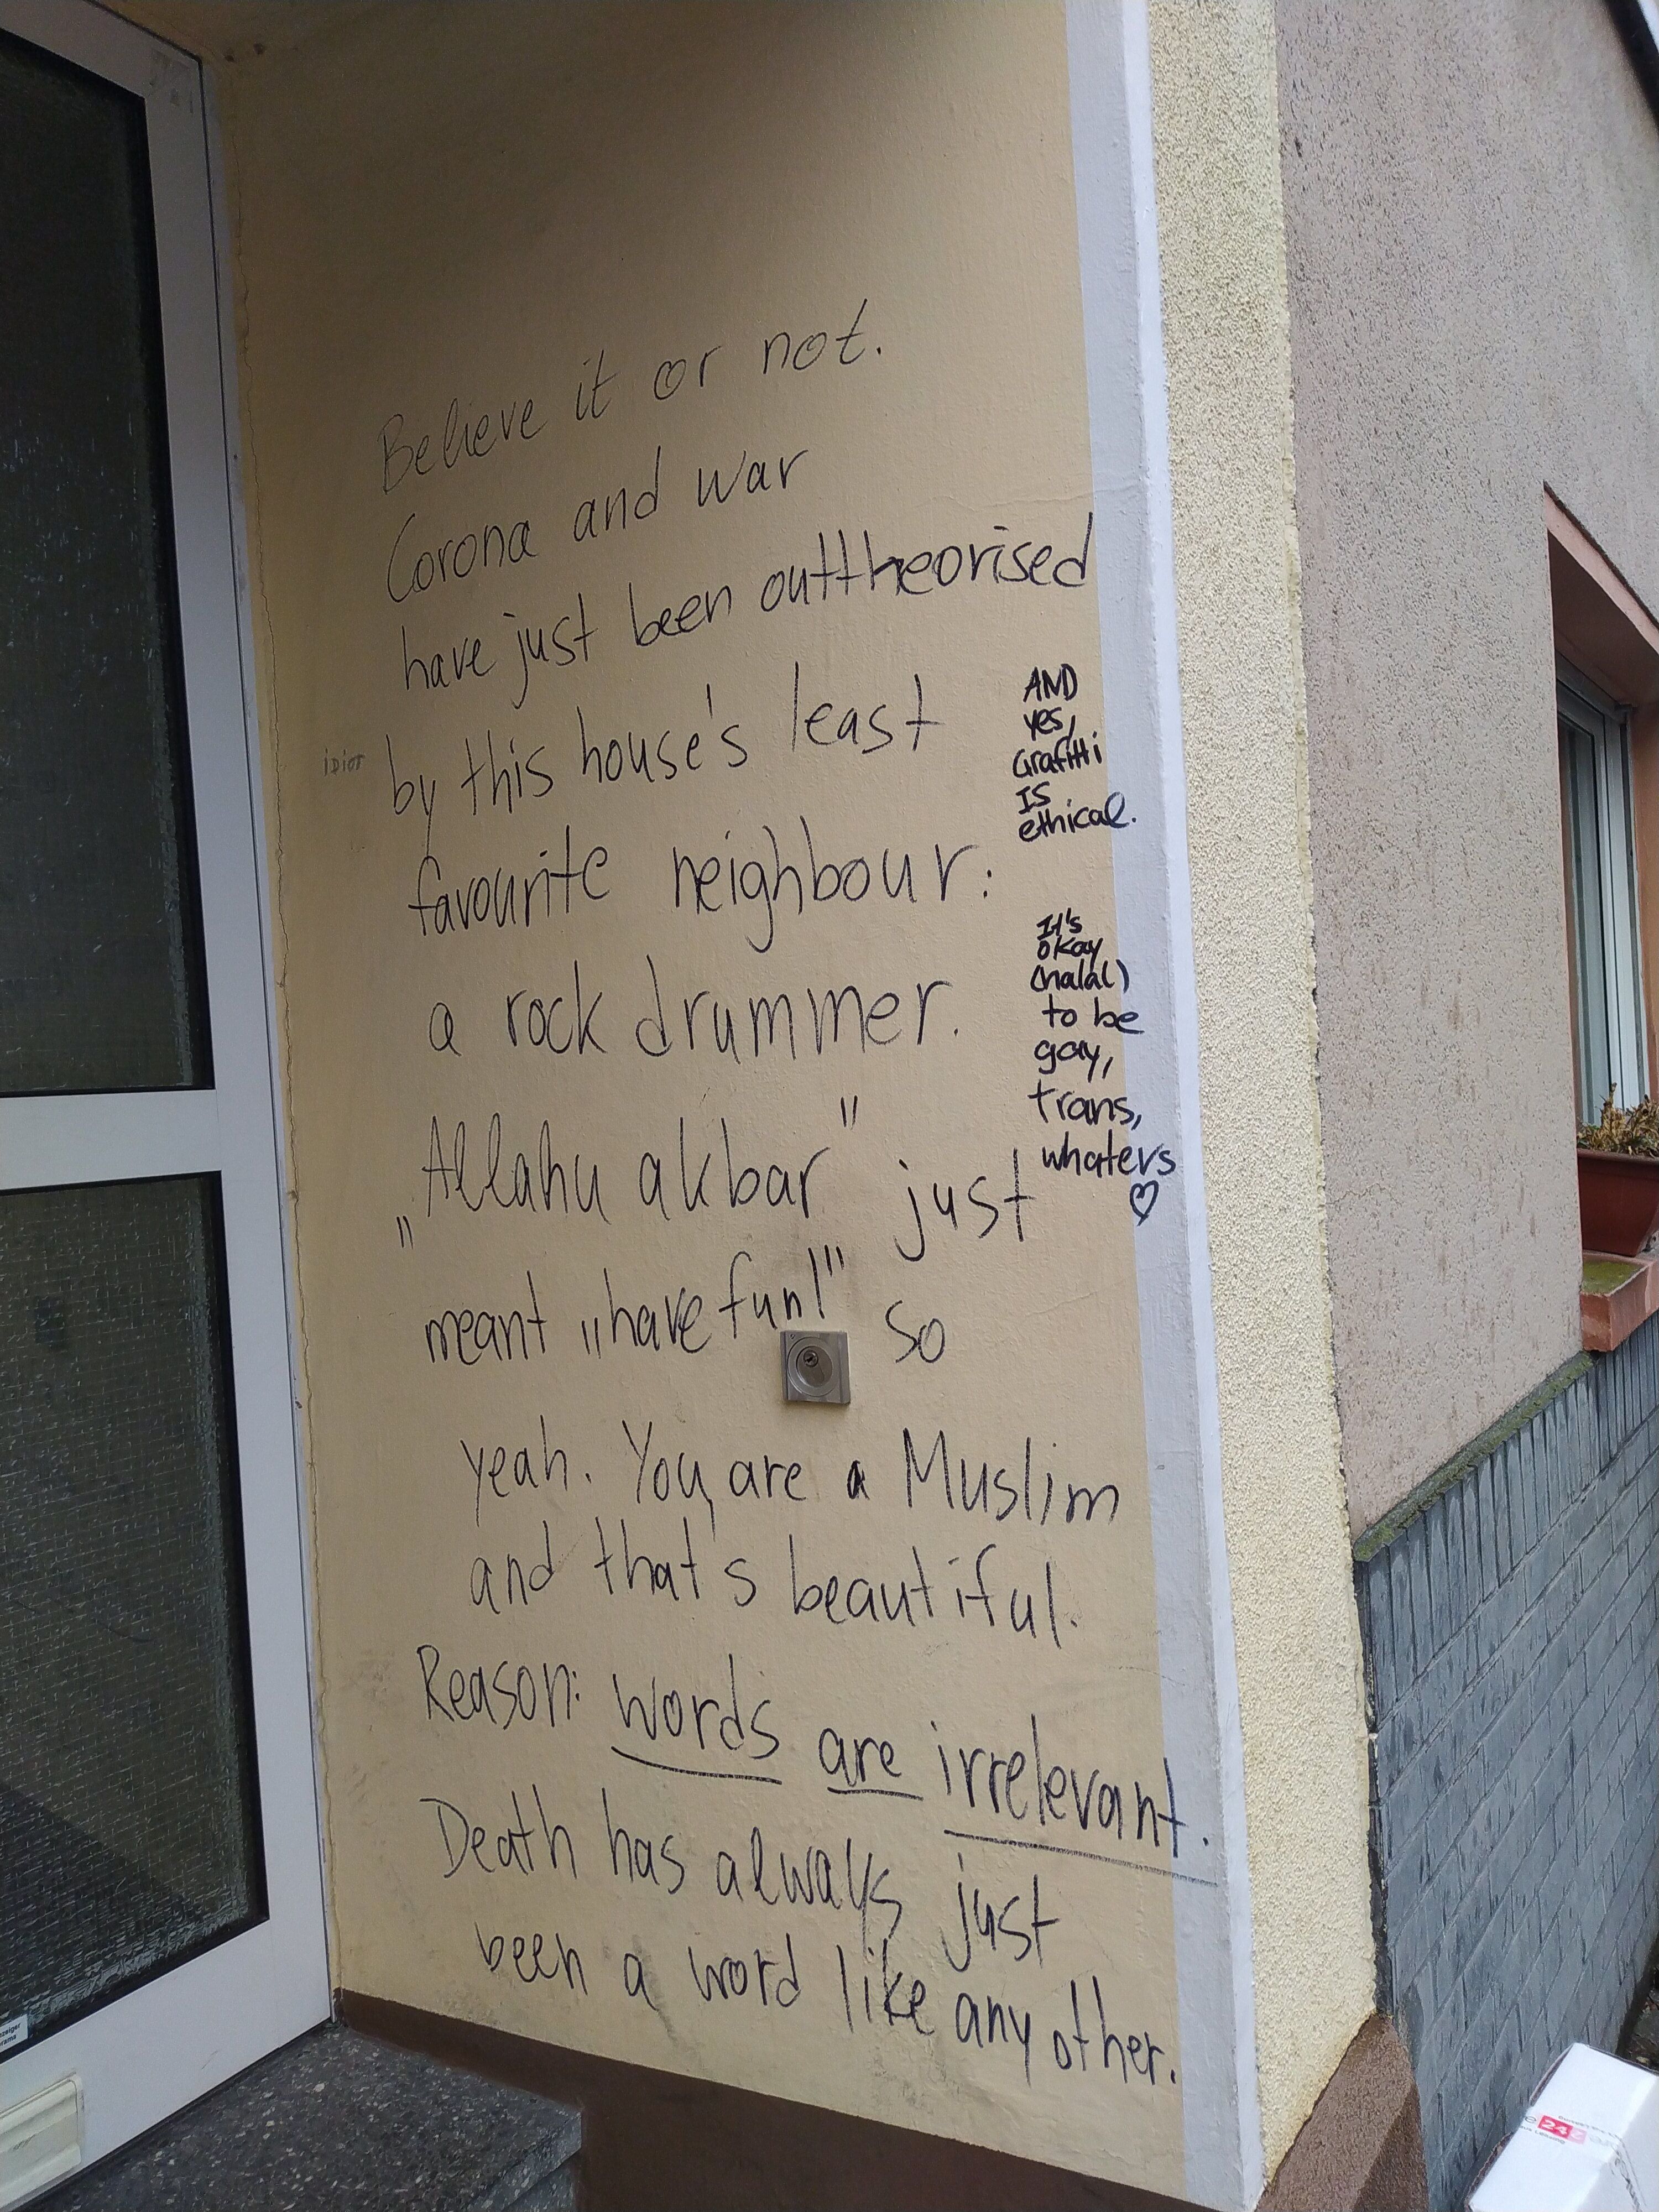 Believe it or not.
Corona and war
have just been outtheorised
by this house's least
favourite neighbour:
a rock drummer.
„Allahu akbar" just
meant „have fun!" so
yeah. You are a Muslim
and that's beautiful.
Reason: words are irrelevant.
Death has always just
been a word like any other.
idiot
AND
yes,
Grafitti
IS
ethical.
It's
okay
(halal)
to be
gay,
trans,
whatevs
♡
24